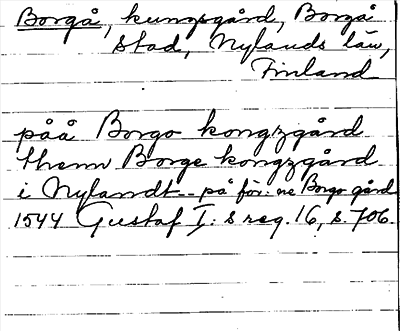 Borgå, kungsgård, Borgå
stad, Nylands län,
Finland
påå Borgo kongzgård
thenn Borge kongzgård
i Nylandt -- på för: ne Borgo gård
1544 Gustaf I: s reg. 16, s. 706.